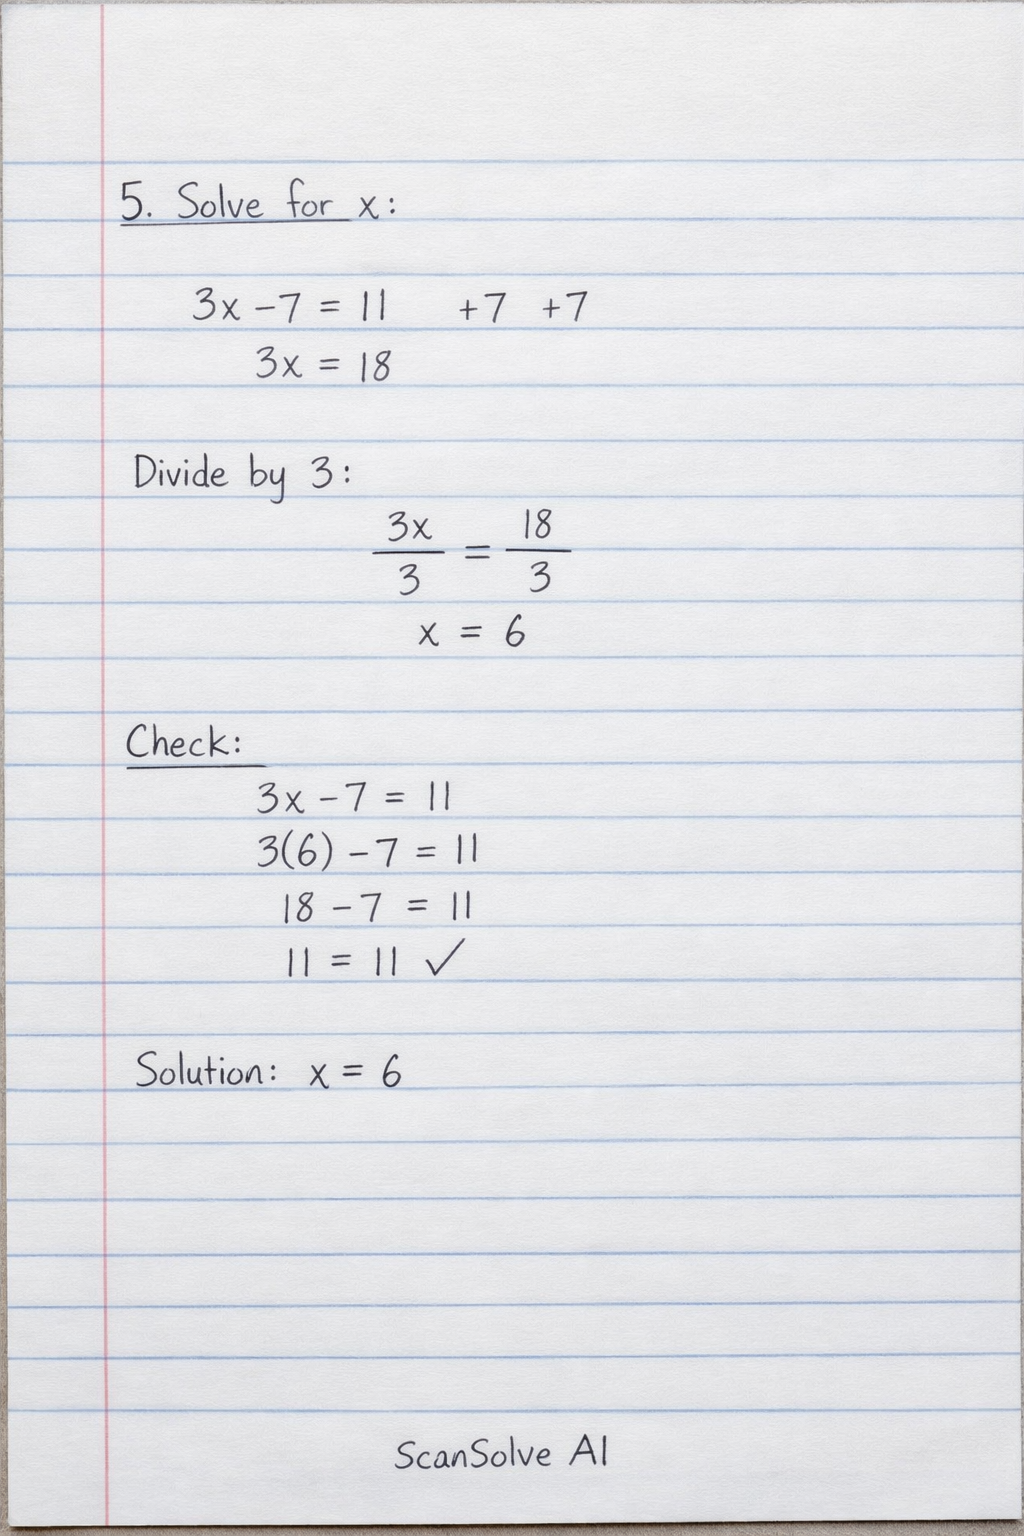 5. Solve for x:
3x − 7 = 11 +7 +7
3x = 18
Divide by 3:
3x/3 = 18/3
x = 6
Check:
3x − 7 = 11
3(6) − 7 = 11
18 − 7 = 11
11 = 11 ✓
Solution: x = 6
ScanSolve AI